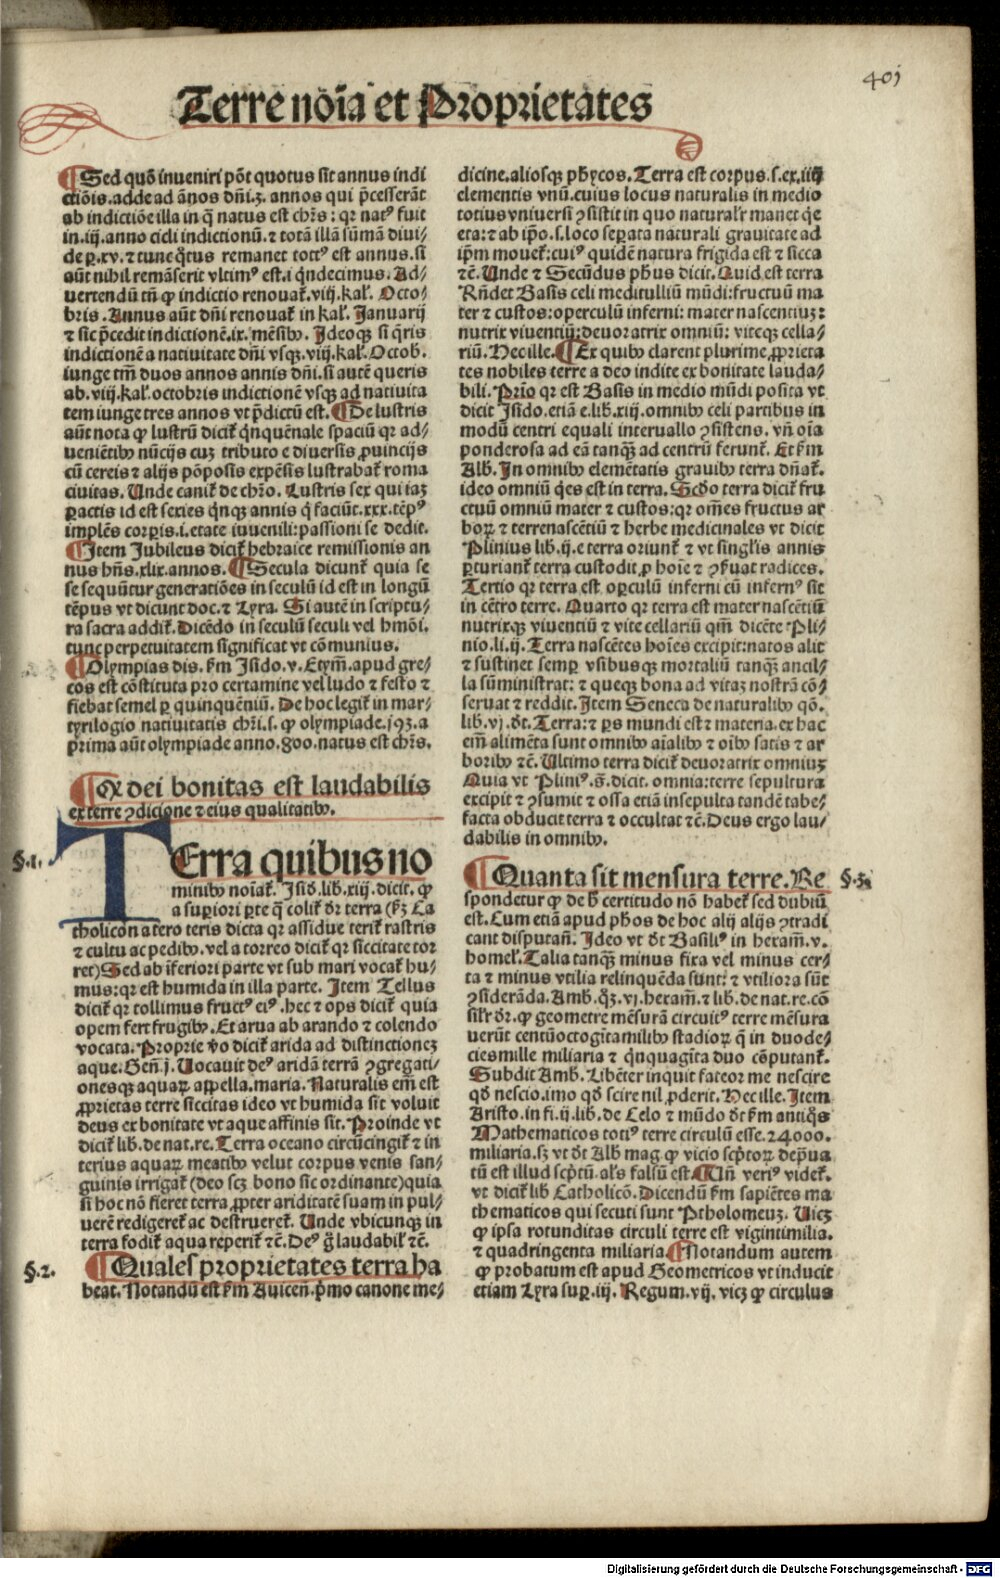 401
Terre nōīa et Proprietates
¶Sed quō inveniri pōt quotus sit annus indi
ctiōis.adde ad āños dñi.ʒ. annos qui p̄cesserāt
ab indictiōe illa in q̄ natus est chr̄s: qꝛ natꝰ fuit
in.iij.anno cicli indictionū.⁊ totā illā sūmā diui⸗
de ꝑ.xv.⁊ tunc q̊tus remanet totꝰ est annus.si
aūt nihil remāserit vltimꝰ est.i q̄ndecimus. Ad⸗
uertendū tñ ꝙ indictio renouat̄.viij.kaƚ. Octo⸗
bris. Annus aūt dñi renouat̄ in kaƚ. Januarij
⁊ sic p̄cedit indictionē.ix.mēsibꝰ. Ideoqꝫ si q̄ris
indictionē a natiuitate dñi vsqꝫ.viij.kaƚ.Octob.
iunge tm̄ duos annos annis dñi.si autē queris
ab.viij.kaƚ.octobris indictionē vsqꝫ ad natiuita
tem iunge tres annos vt p̄dictū est. ¶De lustris
aūt nota ꝙ lustrū dicit̄ q̄nquēnale spaciū qꝛ ad⸗
ueniētibꝰ nūcijs cuꝫ tributo e diuersis ꝓuincijs
cū cereis ⁊ alijs ꝓpositis expēsis lustrabat̄ roma
ciuitas. Unde canit̄ de chr̄o. Lustris sex qui iaꝫ
ꝑactis id est series q̄nqꝫ annis q̄ faciūt.xxx.tēpꝰ
implēs corpis.i.etate iuuenili:passioni se dedit.
¶Item Jubileus dicit̄ hebraice remissionis an
nus hn̄s.xlix.annos. ¶Secula dicunt̄ quia se
se sequūtur generatiōes in seculū id est in longū
tēpus vt dicunt doc.⁊ Lyra. Si autē in scriptu⸗
ra sacra addit̄. Dicēdo in seculū seculi vel hmōi.
tunc perpetuitatem significat vt cōmunius.
¶Olympias dis. ẜm Isido.v.Etym̄.apud gre⸗
cos est cōstituta pro certamine vel ludo ⁊ festo ⁊
fiebat semel ꝑ quinquēniū. De hoc legit̄ in mar⸗
tyrilogio natiuitatis chr̄i.s. ꝙ olympiade.193.a
prima aūt olympiade anno.800.natus est chr̄s.
¶Qꝫ dei bonitas est laudabilis
ex terre ꝯdicione ⁊ eius qualitatibꝰ.
§.1.
TErra quibus no
minibꝰ noīat̄. Isid.lib.xiij.dicit. ꝙ
a superiori ꝑte q̄ colit̄ dr̄ terra (ẜꝫ Ca
tholicon a tero teris dicta qꝛ assidue terit̄ rastris
⁊ cultu ac pedibꝰ.vel a torreo dicit̄ qꝛ siccitate tor
ret) Sed ab īferiori parte vt sub mari vocat̄ hu⸗
mus:qꝛ est humida in illa parte. Item Tellus
dicit̄ qꝛ tollimus fructꝰ eiꝰ.hec ⁊ ops dicit̄ quia
opem fert frugibꝰ. Et arua ab arando ⁊ colendo
vocata. Proprie v̄o dicit̄ arida ad distinctioneꝫ
aque. Gen̄.j. Uocauit deꝰ aridā terrā ꝯgregati⸗
onesqꝫ aquaꝝ appella.maria. Naturalis em̄ est
ꝓprietas terre siccitas ideo vt humida sit voluit
deus ex bonitate vt aque affinis sit. Proinde vt
dicit̄ lib.de nat.re. Terra oceano circūcingit̄ ⁊ in
terius aquaꝝ meatibꝰ velut corpus venis san⸗
guinis irrigat̄ (deo scꝫ bono sic ordinante) quia
si hoc nō fieret terra ꝓpter ariditatē suam in pul⸗
uerē redigeret̄ ac destrueret̄. Unde vbicunqꝫ in
terra fodit̄ aqua reperit̄ ⁊c̄. Deꝰ g̊ laudabiƚ ⁊c̄.
§.2.
¶Quales proprietates terra ha
beat. Notandū est ẜm Auicen̄.p̄mo canone me⸗
dicine.aliosqꝫ phycos. Terra est corpus.s.ex.iiij
elementis vnū.cuius locus naturalis in medio
totius vniuersi ꝯsistit in quo naturaƚr manet q̄e
eta:⁊ ab ip̄o.s.loco seꝑata naturali grauitate ad
ip̄m mouet̄:cuiꝰ quidē natura frigida est ⁊ sicca
⁊c̄. Unde ⁊ Secūdus ph̄us dicit. Quid est terra
Rñdet Basis celi meditulliū mūdi:fructuū ma
ter ⁊ custos:operculū inferni: mater nascentiuꝫ:
nutrix viuentiū:deuoratrix omniū: viteqꝫ cella⸗
riū. Hec ille. ¶Ex quibꝰ clarent plurime ꝓprieta
tes nobiles terre a deo indite ex bonitate lauda⸗
bili. Prīo qꝛ est Basis in medio mūdi posita vt
dicit Isido.etiā e.lib.xiij.omnibꝰ celi partibus in
modū centri equali interuallo ꝯsistens. vn̄ oīa
ponderosa ad eā tanqꝫ ad centrū ferunt̄. Et ẜm
Alb. In omnibꝰ elemētatis grauibꝰ terra dn̄at̄.
ideo omniū q̄es est in terra. Scd̄o terra dicit̄ fru
ctuū omniū mater ⁊ custos:qꝛ om̄es fructus ar
boꝝ ⁊ terrenascētiū ⁊ herbe medicinales vt dicit
Plinius lib.ij.e terra oriunt̄ ⁊ vt singƚis annis
ꝑturiant̄ terra custodit ꝓ hoīe ⁊ ꝯẜuat radices.
Tertio qꝛ terra est oꝑculū inferni cū infernꝰ sit
in cētro terre. Quarto qꝛ terra est mater nascētiū
nutrixqꝫ viuentiū ⁊ vite cellariū qm̄ dicēte Pli⸗
nio.li.ij. Terra nascētes hoīes excipit:natos alit
⁊ sustinet semꝑ vsibusqꝫ mortaliū tanqꝫ ancil⸗
la sūministrat: ⁊ queqꝫ bona ad vitaꝫ nostrā cō⸗
seruat ⁊ reddit. Item Seneca de naturalibꝰ qō.
lib.vj.dt. Terra: ⁊ ꝑs mundi est ⁊ materia.ex hac
em̄ alimēta sunt omnibꝰ aīalibꝰ ⁊ oībꝰ satis ⁊ ar
boribꝰ ⁊c̄. Ultimo terra dicit̄ deuoratrix omniuꝫ
Quia vt Pliniꝰ.s̄.dicit. omnia:terre sepultura
excipit ⁊ ꝯsumit ⁊ ossa etiā insepulta tandē tabe⸗
facta obducit terra ⁊ occultat ⁊c̄. Deus ergo lau⸗
dabilis in omnibꝰ.
¶Quanta sit mensura terre. Re
§.3.
spondetur ꝙ de h̄ certitudo nō habet̄ sed dubiū
est. Cum etiā apud ph̄os de hoc alij alijs ꝯtradi
cant disputan̄. Ideo vt dt Basiliꝰ in hexam̄.v.
homeƚ. Talia tanqꝫ minus fixa vel minus cer⸗
ta ⁊ minus vtilia relinquēda sunt: ⁊ vtiliora sūt
ꝯsiderāda. Amb. q̄ꝫ.vj.hexam̄.⁊ lib.de nat.re.cō
siƚr dr̄. ꝙ geometre mēsurā circuitꝰ terre mēsura
uerūt centūoctogītamilibꝰ stadioꝝ q̄ in duode⸗
ciesmille miliaria ⁊ q̄nquagīta duo cōputant̄.
Subdit Amb. Libēter inquit fateor me nescire
qd̄ nescio.imo qd̄ scire nil ꝓderit. Hec ille. Item
Aristo.in fi.ij.lib.de Celo ⁊ mūdo dt ẜm antiq̊s
Mathematicos totiꝰ terre circulū esse.24000.
miliaria.sꝫ vt dt Alb mag.ꝙ vicio scp̄toꝝ dep̄ua
tū est illud scp̄tū.aƚs falsū est. ¶Un̄ veriꝰ videt̄.
vt dicit̄ lib Catholicō. Dicendū ẜm sapiētes ma
thematicos qui secuti sunt Ptholomeuꝫ. Uicꝫ
ꝙ ipsa rotunditas circuli terre est vigintimilia.
⁊ quadringenta miliaria. ¶Notandum autem
ꝙ probatum est apud Geometricos vt inducit
etiam Lyra suꝑ.iij. Regum.vij. vicꝫ ꝙ circulus
Digitalisierung gefördert durch die Deutsche Forschungsgemeinschaft - DFG